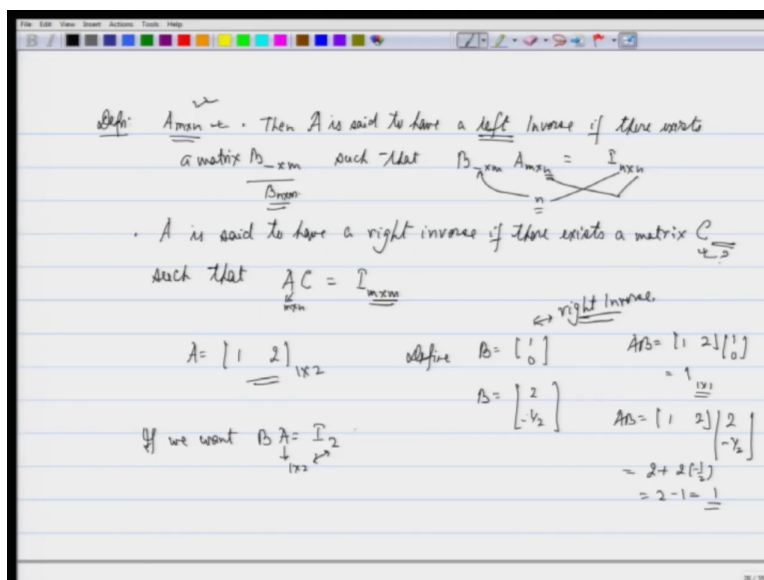 File Edit View Insert Actions Tools Help
Defn: A_{m×n}. Then A is said to have a left Inverse if there exists
a matrix B_{_×m} such that B_{_×m} A_{m×n} = I_{n×n}
B_{n×m} n
. A is said to have a right inverse if there exists a matrix C_{?}
such that A C = I_{m×m}
m×n
↔ right Inverse
A = [1 2]_{1×2} Define B = [1 0] AB = [1 2][1 0]
= 1_{1×1}
B = [2 -1/2] AB = [1 2][2 -1/2]
If we want B A = I_2
1×2
= 2 + 2(-1/2)
= 2 - 1 = 1